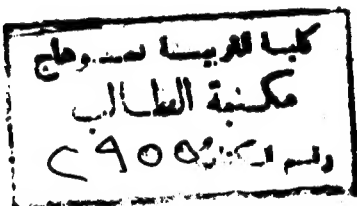 كلية التربية بسوهاج
مكتبة الطالب
رقم الكتاب ٢٩٥٥